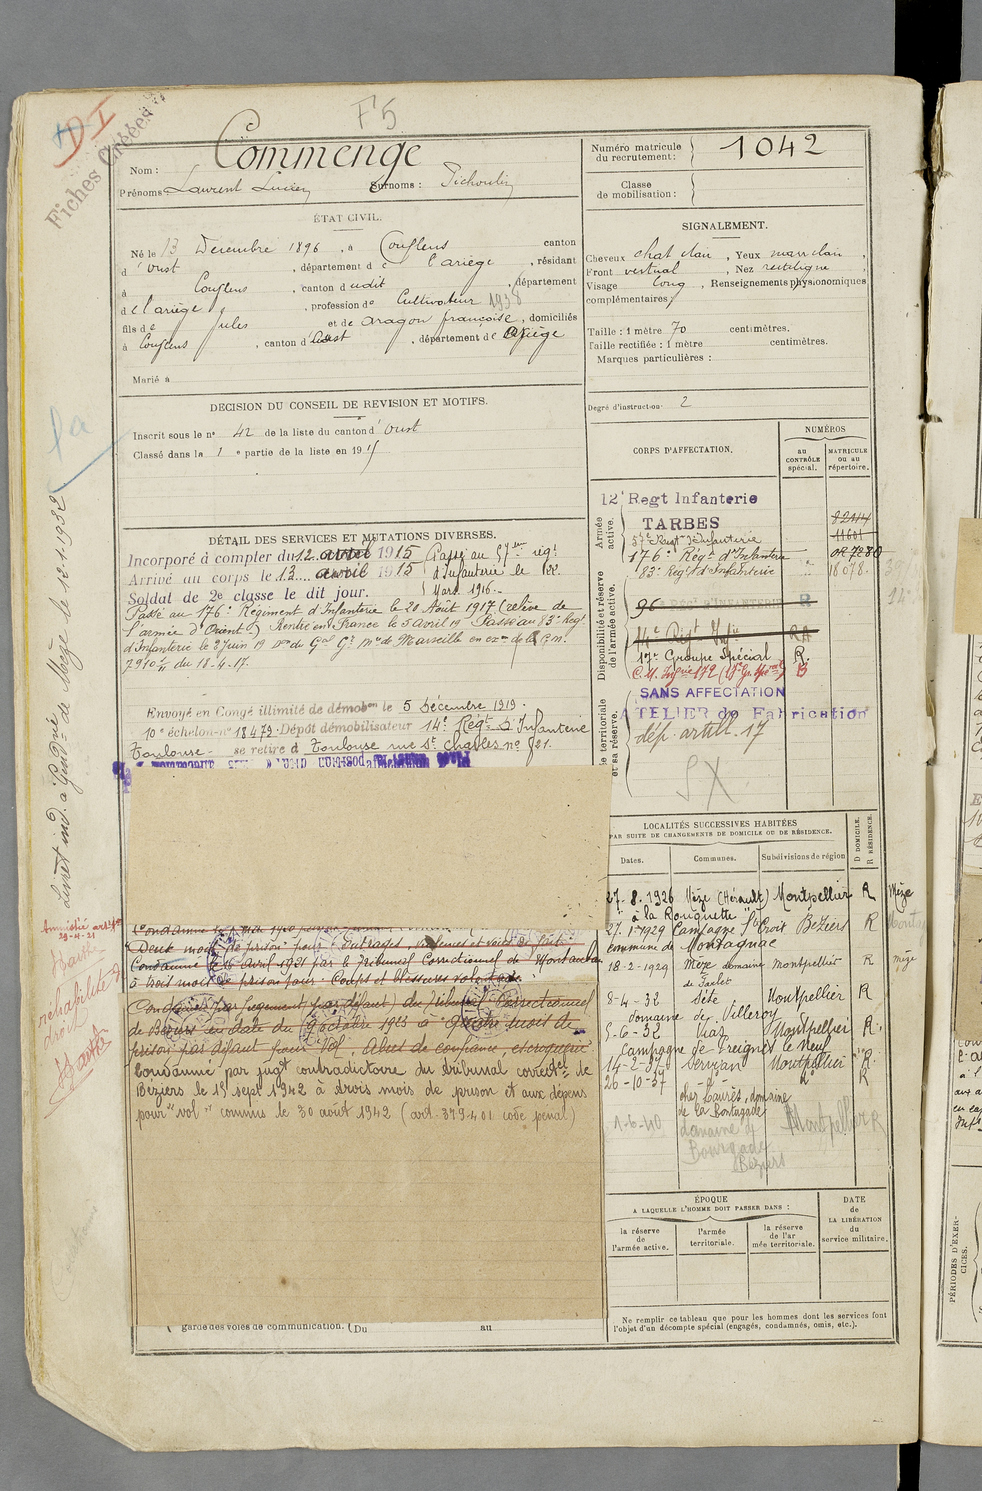 F5
DI
Fiches Créées
Nom : Commenge
Prénoms : Laurent Lucien Surnoms : Pichoulin
Numéro matricule du recrutement : 1042
Classe de mobilisation :
ÉTAT CIVIL.
Né le 13 Décembre 1896, à Couflens canton
d'Oust, département de l'ariège, résidant
à Couflens, canton dudit, département
de l'ariège, profession de Cultivateur 1938
fils de Jules et de aragon françoise, domiciliés
à Couflens, canton d'Oust, département de Ariège
Marié à
SIGNALEMENT.
Cheveux chat clair, Yeux marr clair,
Front vertical, Nez rectiligne,
Visage long, Renseignements physionomiques
complémentaires :
Taille : 1 mètre 70 centimètres.
Taille rectifiée : 1 mètre centimètres.
Marques particulières :
Degré d'instruction : 2
DÉCISION DU CONSEIL DE REVISION ET MOTIFS.
Inscrit sous le no 42 de la liste du canton d'Oust
Classé dans la 1e partie de la liste en 1915
CORPS D'AFFECTATION.
NUMÉROS
au CONTRÔLE spécial.
MATRICULE ou au répertoire.
Armée active.
12e Regt Infanterie
TARBES
57e Regt d'Infanterie 11601
176e Régt d'Infanterie
83e Régt d'Infanterie 18078
Disponibilité et réserve de l'armée active.
96 INFANTERIE R
14e Régt Inf ie RA
17e Groupe Spécial R.
SANS AFFECTATION
ATELIER de Fabrication
dép. artill. 17
SX
DÉTAIL DES SERVICES ET MUTATIONS DIVERSES.
Incorporé à compter du 12 avril 1915 Passé au 57eme régt
Arrivé au corps le 13 avril 1915 d'Infanterie le 22
Soldat de 2e classe le dit jour. Mars 1916.
Passé au 176e Régiment d'Infanterie le 20 Août 1917 (relève de
l'armée d'Orient) Rentré en France le 5 avril 19 Passé au 83e Régt
d'Infanterie le 2 Juin 19 de Marseille
du 18-4-17.
Envoyé en Congé illimité de démobon le 5 Décembre 1919.
10e échelon no 18479. Dépôt démobilisateur 14e Régt d'Infanterie
Toulouse - se retire à Toulouse rue St Charles no 21.
livret ind. à Gendie de Mèze le 10.1.1932
Amnistié
29-4-21
réhabilité de
droit
Barthe
Deux mois de prison pour "Outrages, violences et voies de fait"
Condamné le 16 Avril 1921 par le Tribunal Correctionnel de Montauban
à trois mois de prison pour : Coups et blessures volontaires.
Condamné par jugement par défaut du Tribunal Correctionnel
de Béziers en date du 9 octobre 1923 à Quatre mois de
prison par défaut pour Vol, Abus de confiance, escroquerie
Condamné par jugt contradictoire du tribunal correctel de
Béziers le 15 sept 1942 à trois mois de prison et aux dépens
pour "vol" commis le 30 août 1942 (art. 379-401 code pénal)
LOCALITÉS SUCCESSIVES HABITÉES
PAR SUITE DE CHANGEMENTS DE DOMICILE OU DE RÉSIDENCE.
Dates.
Communes.
Subdivisions de région
D DOMICILE. R RÉSIDENCE.
27-8-1926 Mèze (Hérault) Montpellier R Mèze
"à la Rouquette"
27-1-1929 Campagne Ste Croix Béziers R
commune de Montagnac
18-2-1929 Mèze domaine Montpellier R Mèze
8-4-32 Sète, Montpellier R
domaine de Villeroy
5-6-32 Vias Montpellier R.
Campagne de Preignes le Neuf
14-2-37 Servian Montpellier R.
26-10-37 -d- d° R
chez Laurès, domaine
de la Bourgade
1-6-40 domaine de Montpellier R
Bourgade
Béziers
ÉPOQUE
A LAQUELLE L'HOMME DOIT PASSER DANS :
la réserve de l'armée active.
l'armée territoriale.
la réserve de l'armée territoriale.
DATE de LA LIBÉRATION du service militaire.
Ne remplir ce tableau que pour les hommes dont les services font
l'objet d'un décompte spécial (engagés, condamnés, omis, etc.).
garde des voies de communication. (Du au
PÉRIODES D'EXERCICES.